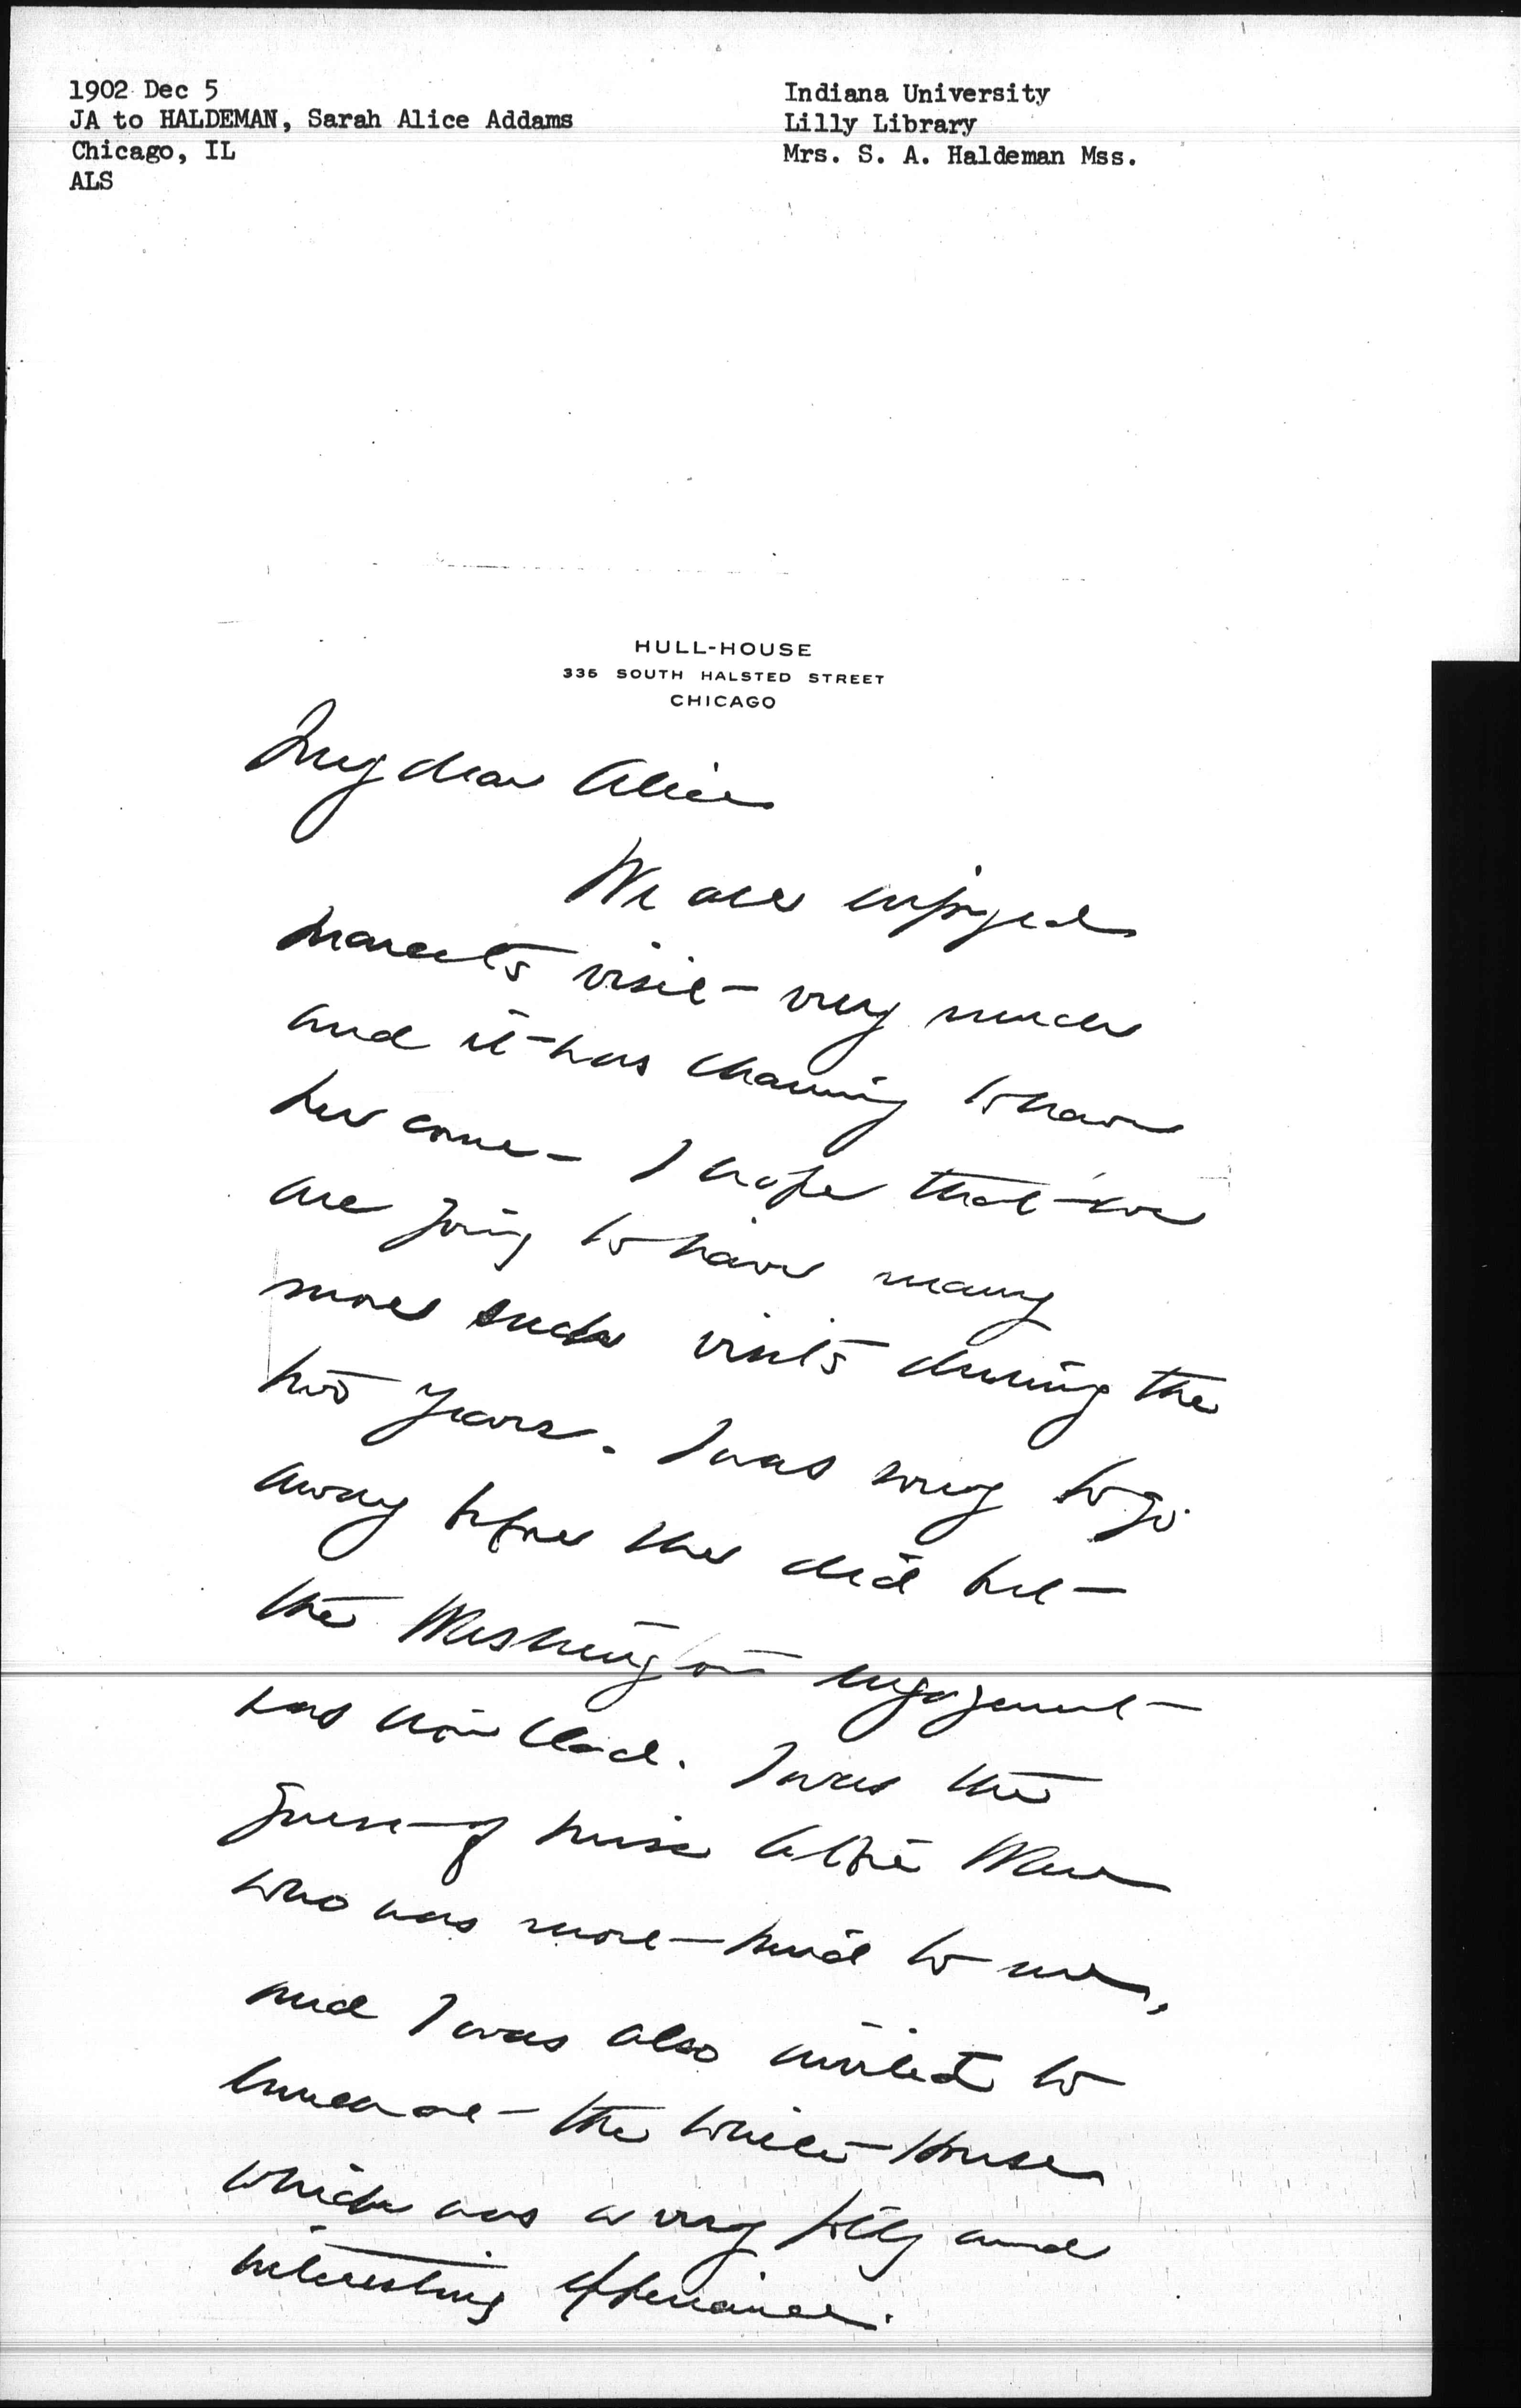 1902 Dec 5
JA to HALDEMAN, Sarah Alice Addams
Chicago, IL
ALS
Indiana University
Lilly Library
Mrs. S. A. Haldeman Mss.
HULL-HOUSE
335 SOUTH HALSTED STREET
CHICAGO
My dear Alice
We all enjoyed
Marcet's visit very much
and it was charming to have
her come – I hope that we
are going to have many
more such visits during the
two years. I was sorry to go
away before she did but
the Washington engagement
was iron clad. I was the
guest of Miss
who was most kind to me,
and I was also invited to
lunch at the White House
which was a very jolly and
interesting experience.